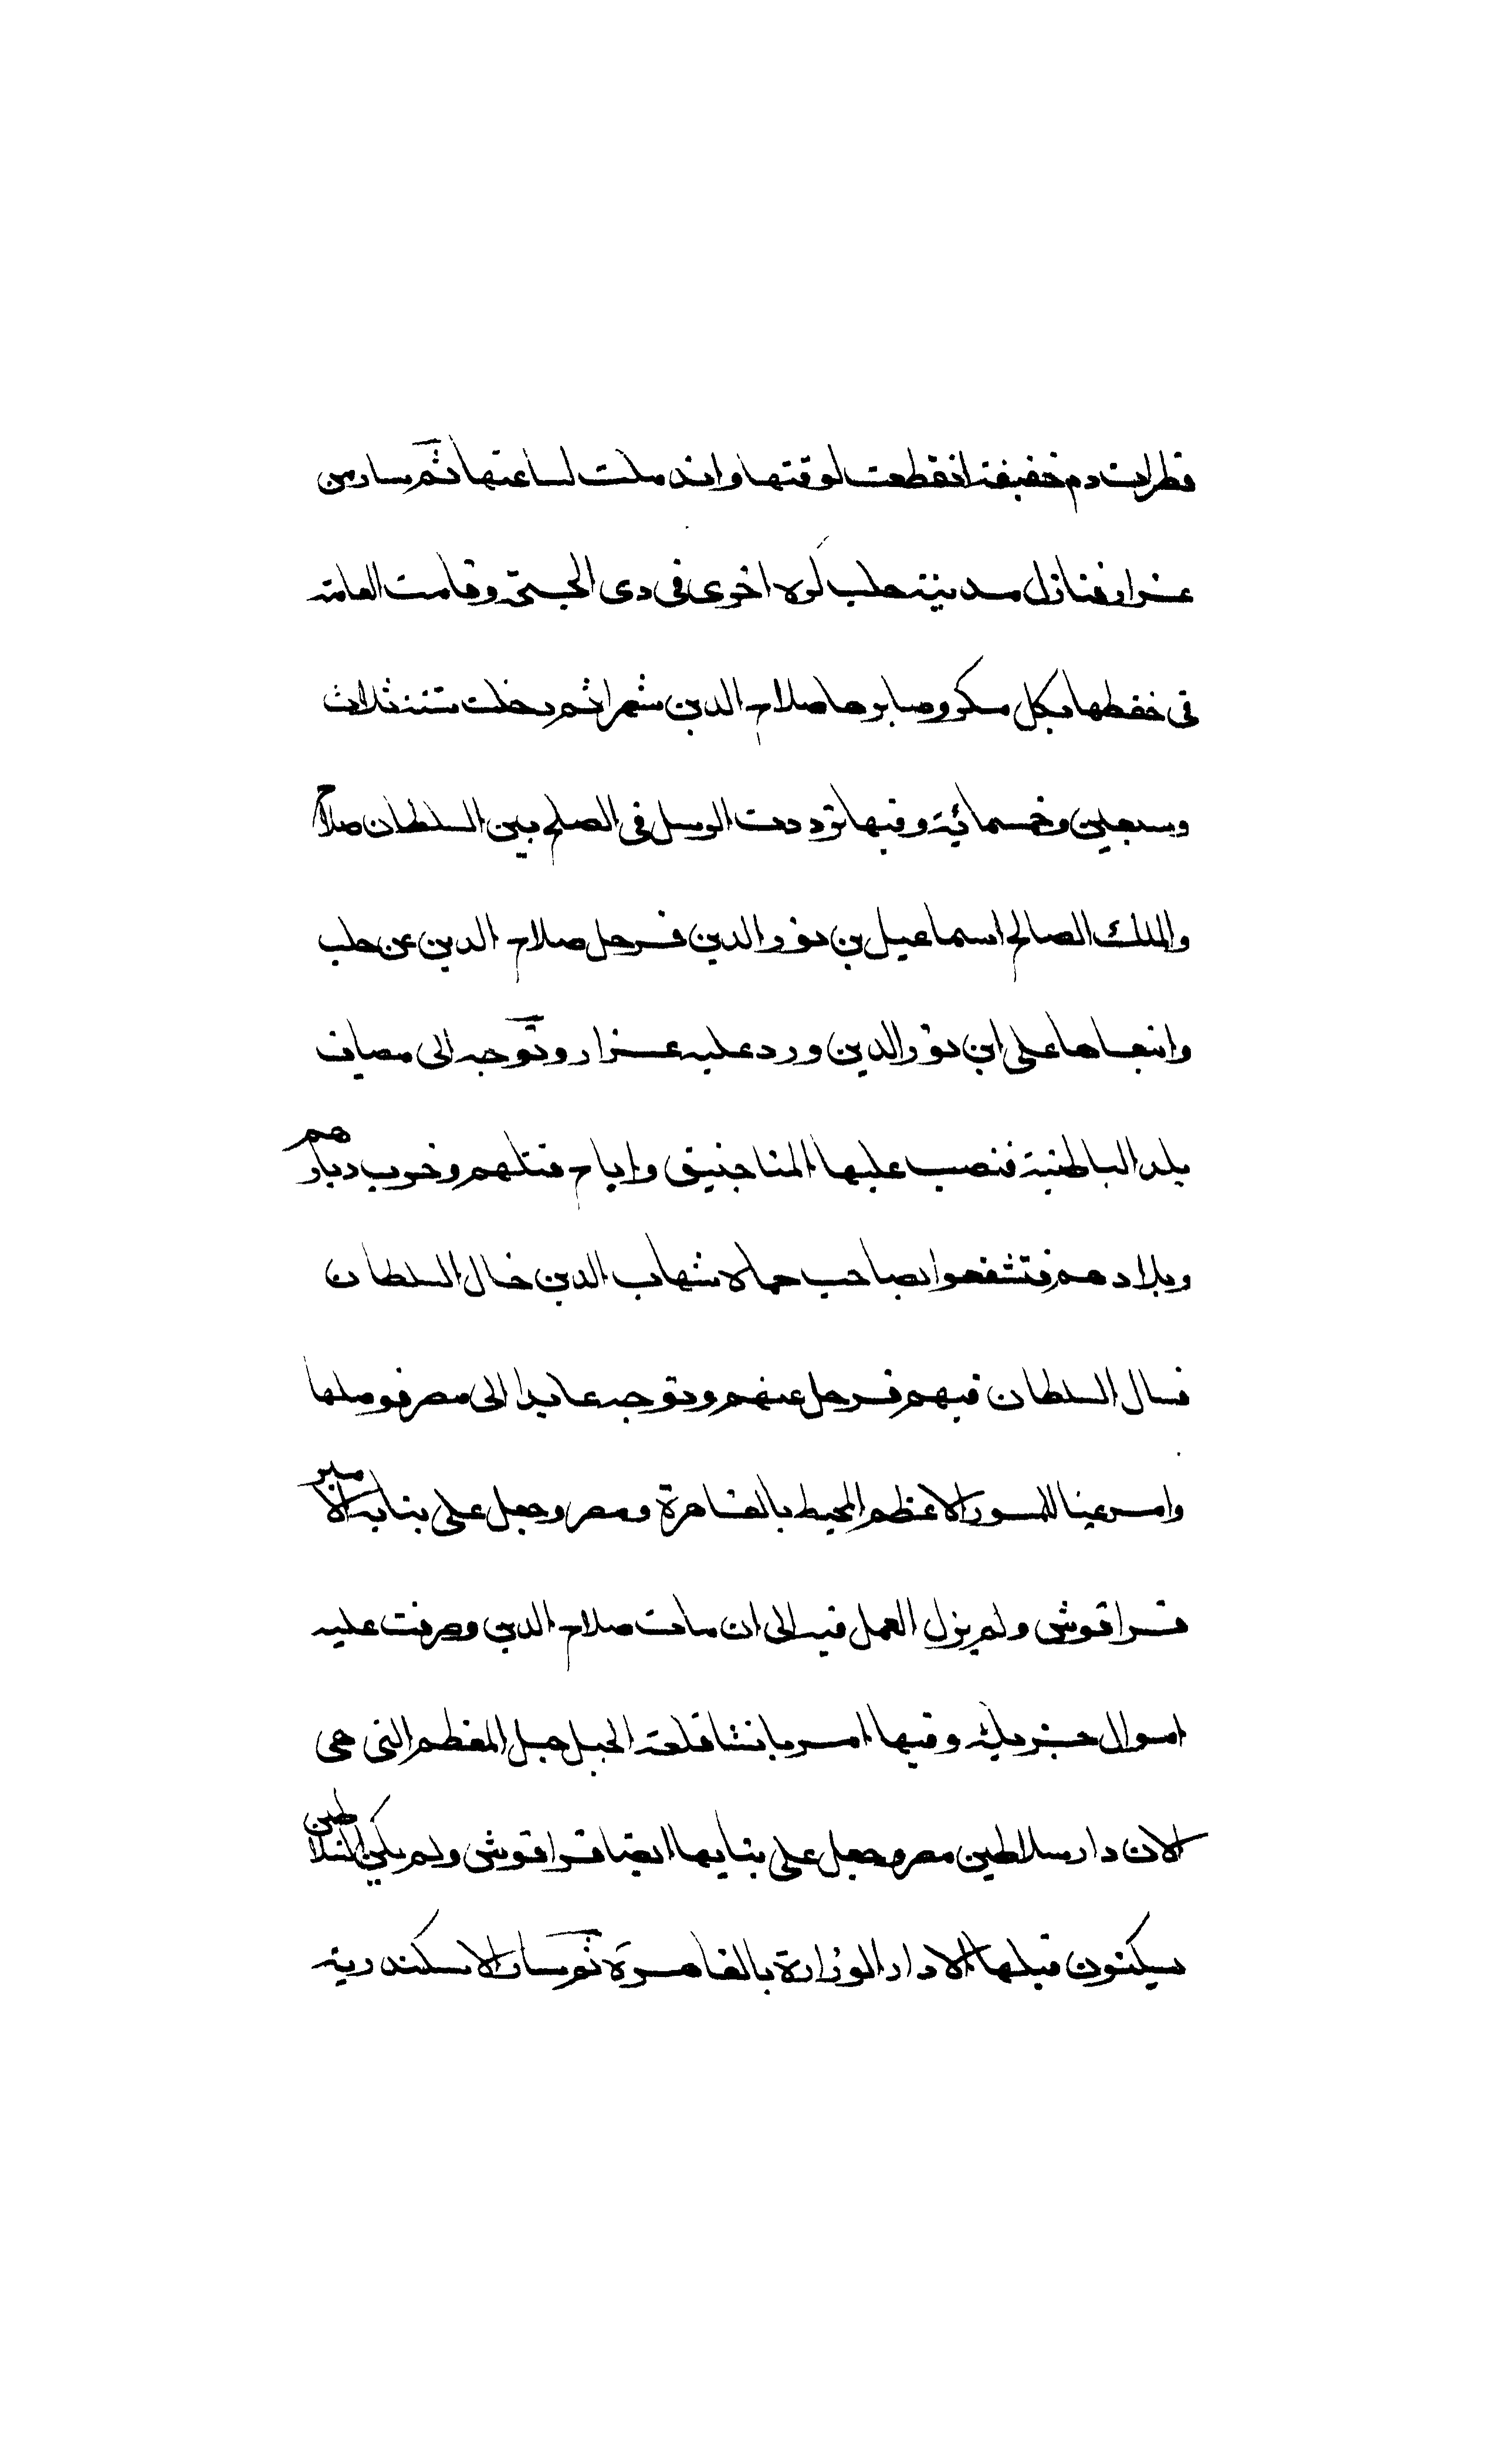 قطرات دم خفيفة انقطعت لوقتها واندملت لساعتها ثم سار من
عزاز فنازل مدينة حلب كرة اخرى فى دى الحجة وقامت العامة
فى حفظها بكل مـكر وصابرها صلاح الدين شهرا ثم دخلت سنة ثلاث
وسبعين وخمسمائة وفيها ترددت الرسل فى الصلح بين السلطان صلاح
والملك الصالح اسماعيل بن نور الدين فرحل صلاح الدين عن حلب
وابقاها على ابن نور الدين ورد عليه عزاز وتوجه الى مصياف
بلد الباطنية فنصب عليها المناجنيق واباح قتلهم وخرب ديارهم
وبلادهم فتشفعوا بصاحب حماة شهاب الدين خال السلطان
فسال السلطان فيهم فرحل عنهم وتوجه عايدا الى مصر فوصلها
وامر ببنا السور الاعظم المحيط بالقاهرة ومصر وجعل على بنايه الامير
قراقوش ولم يزل العمل فيه الى ان مات صلاح الدين وصرفت عليه
اموال جزيلة وفيها امر بانشا قلعة الجبل جبل المقطم التى هى
الان دار سلاطين مصر وجعل على بنايها ايضا قراقوش ولم يكن السلاطين
يسكنون قبلها الا دار الوزارة بالقاهرة ثم سار الاسكندرية